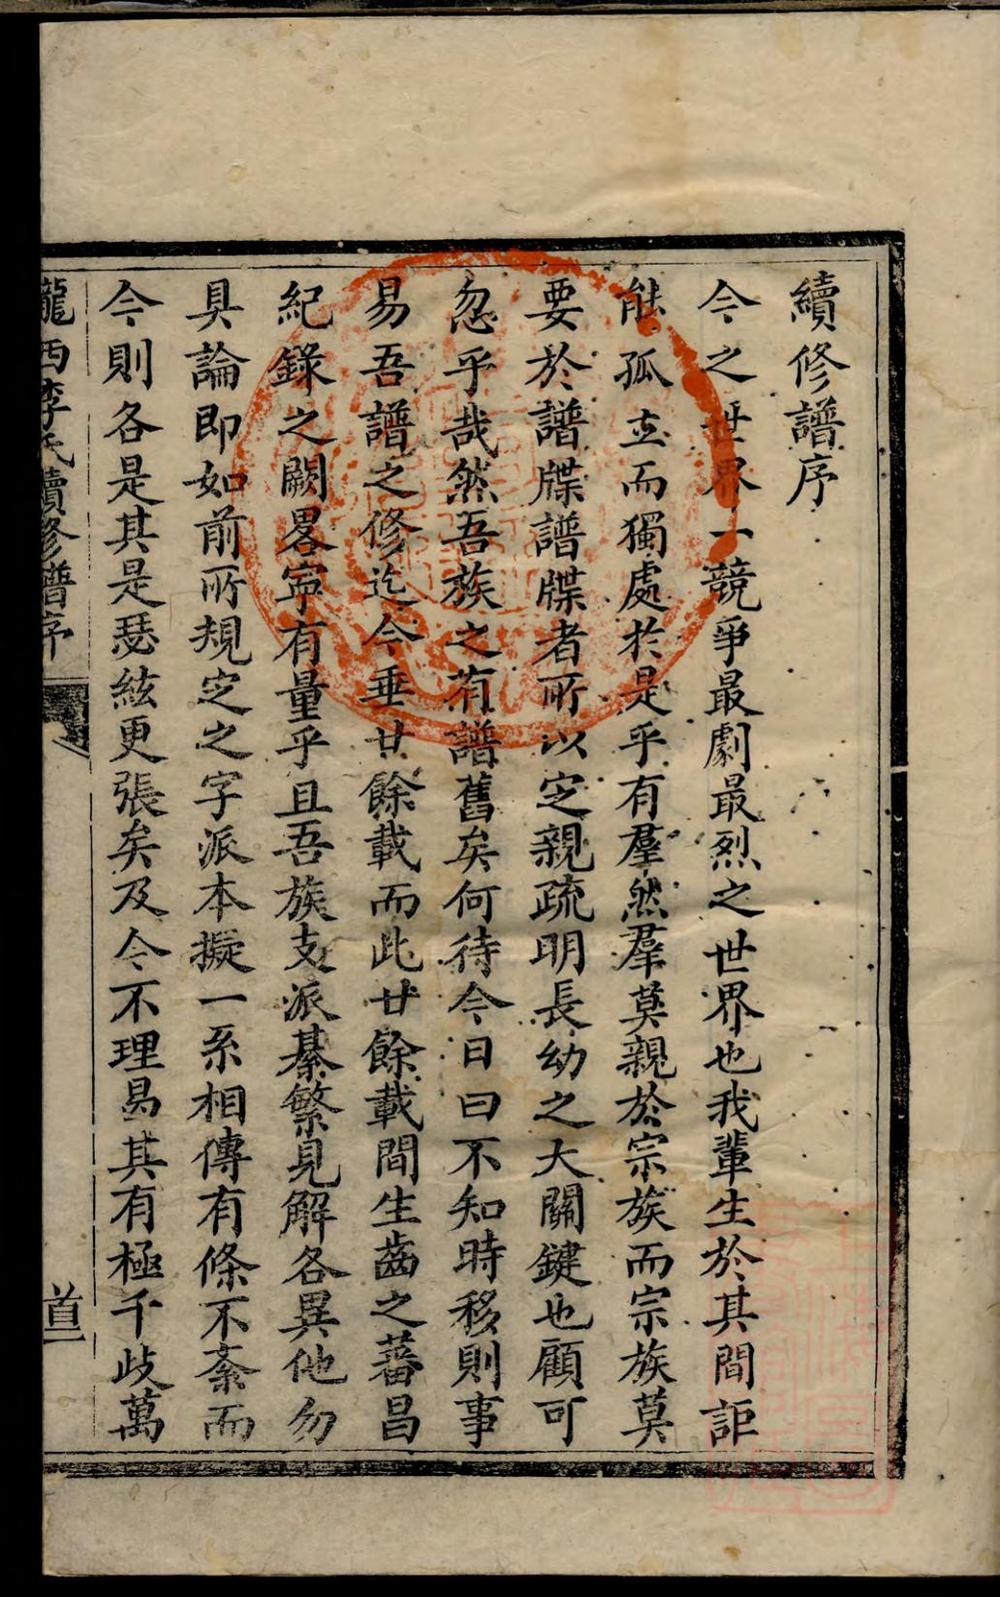 續修譜序
今之世界一競爭最劇最烈之世界也我輩生於其間詎
能孤立而獨處於是乎有羣然羣莫親於宗族而宗族莫
要於譜牒譜牒者所以定親疏明長幼之大關鍵也顧可
忽乎哉然吾族之有譜舊矣何待今日曰不知時移則事
易吾譜之修迄今垂廿餘載而此廿餘載間生齒之蕃昌
紀錄之闕畧寧有量乎且吾族支派綦繁見解各異他勿
具論即如前所規定之字派本擬一系相傳有條不紊而
今則各是其是瑟絃更張矣及今不理曷其有極千歧萬
隴西李氏續修譜序
首一